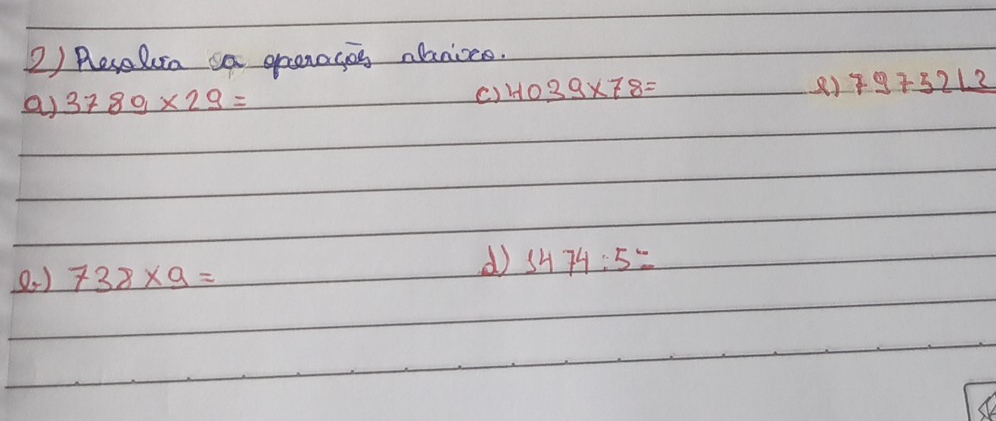 2) Resolva as operações abaixo.
a) 3789 x 29 = c) 4039 x 78 = e) 797532 L2
b) 738 x 9 = d) 5474 : 5 =